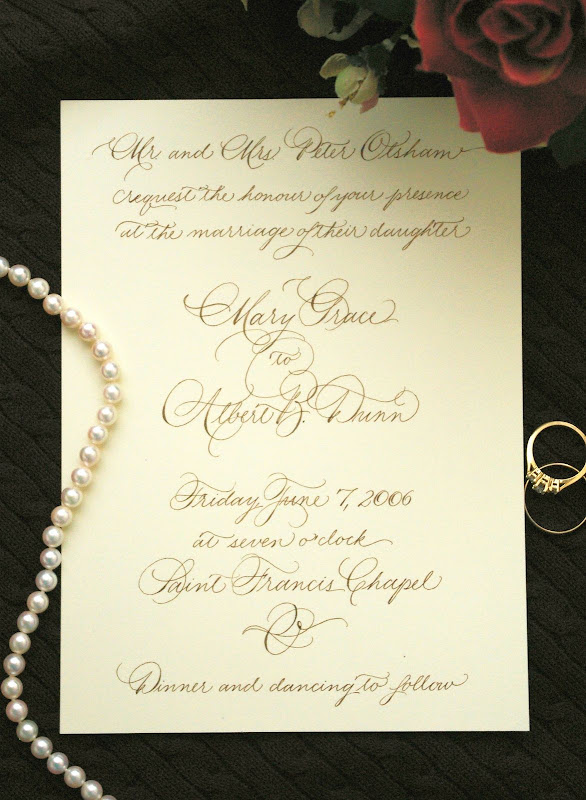 Mr. and Mrs. Peter Otsham
request the honour of your presence
at the marriage of their daughter
Mary Grace
to
Albert B. Dunn
Friday June 7, 2006
at seven o'clock
Saint Francis Chapel
Dinner and dancing to follow